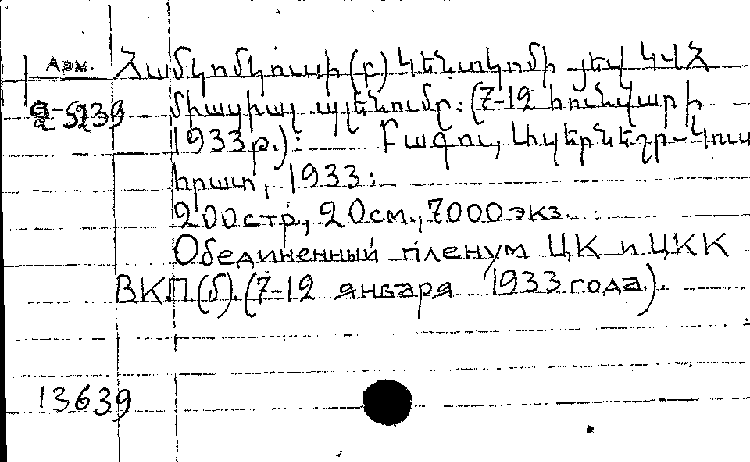 Арм. Համկոմկուսի (բ) Կենտկոմի յեվ ԿՎՀ
2-5239 միացիալ պլենումը: (7-12 հունվարի
1933թ.): Բագու, Ադերնեշր-Կուս
հրատ, 1933:
200стр., 20см., 7000экз.
Обединенный пленум ЦК и ЦКК
ВКП(б). (7-12 января 1933 года).
13639